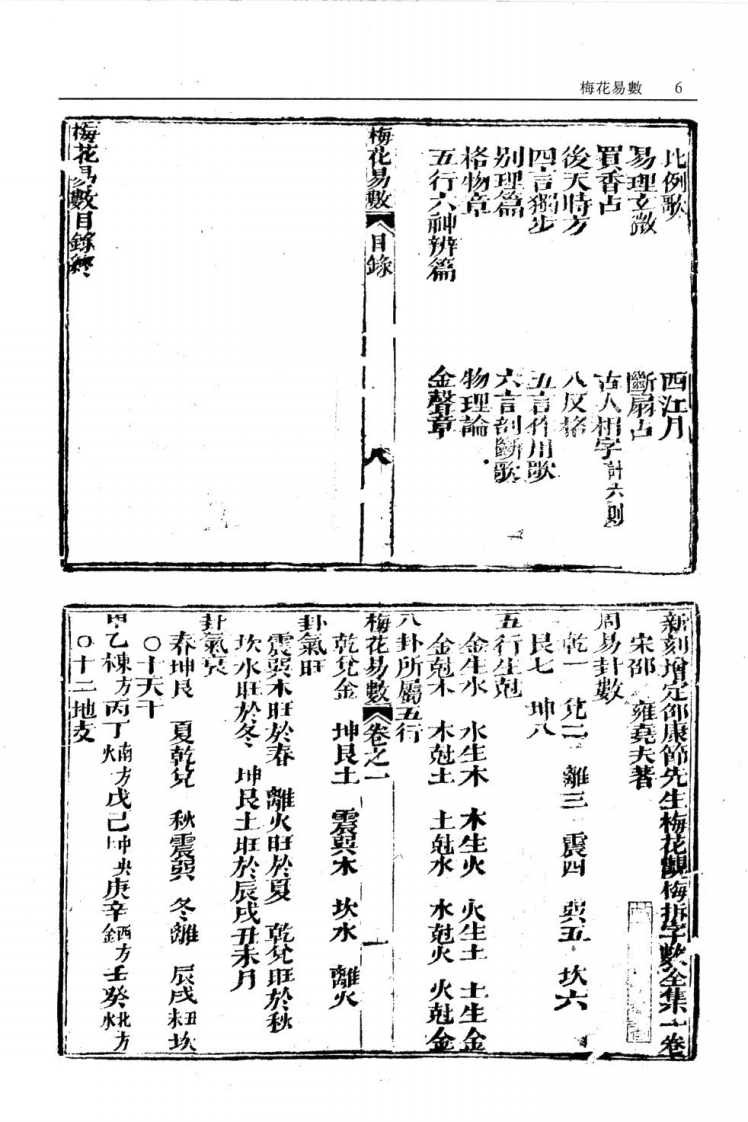 梅花易數 6
比例歌 西江月
易理玄微 斷扇占
買香占 古人相字計六則
後天時方 八反格
四言獨步 五言作用歌
別理篇 六言剖斷歌
格物章 物理論
五行六神辨篇 金聲章
梅花易數 目錄 八
梅花易數目錄終
新刻增定邵康節先生梅花觀梅拆字數全集一卷
宋邵 雍堯夫著
周易卦數
乾一 兌二 離三 震四 巽五 坎六
艮七 坤八
五行生剋
金生水 水生木 木生火 火生土 土生金
金尅木 木尅土 土尅水 水尅火 火尅金
八卦所屬五行
梅花易數 卷之一 一
乾兌金 坤艮土 震巽木 坎水 離火
卦氣旺
震巽木旺於春 離火旺於夏 乾兌旺於秋
坎水旺於冬 坤艮土旺於辰戌丑未月
卦氣衰
春坤艮 夏乾兌 秋震巽 冬離 辰戌丑未坎
○十天干
甲乙東方木丙丁南方火戊己中央土庚辛西方金壬癸北方水
○十二地支